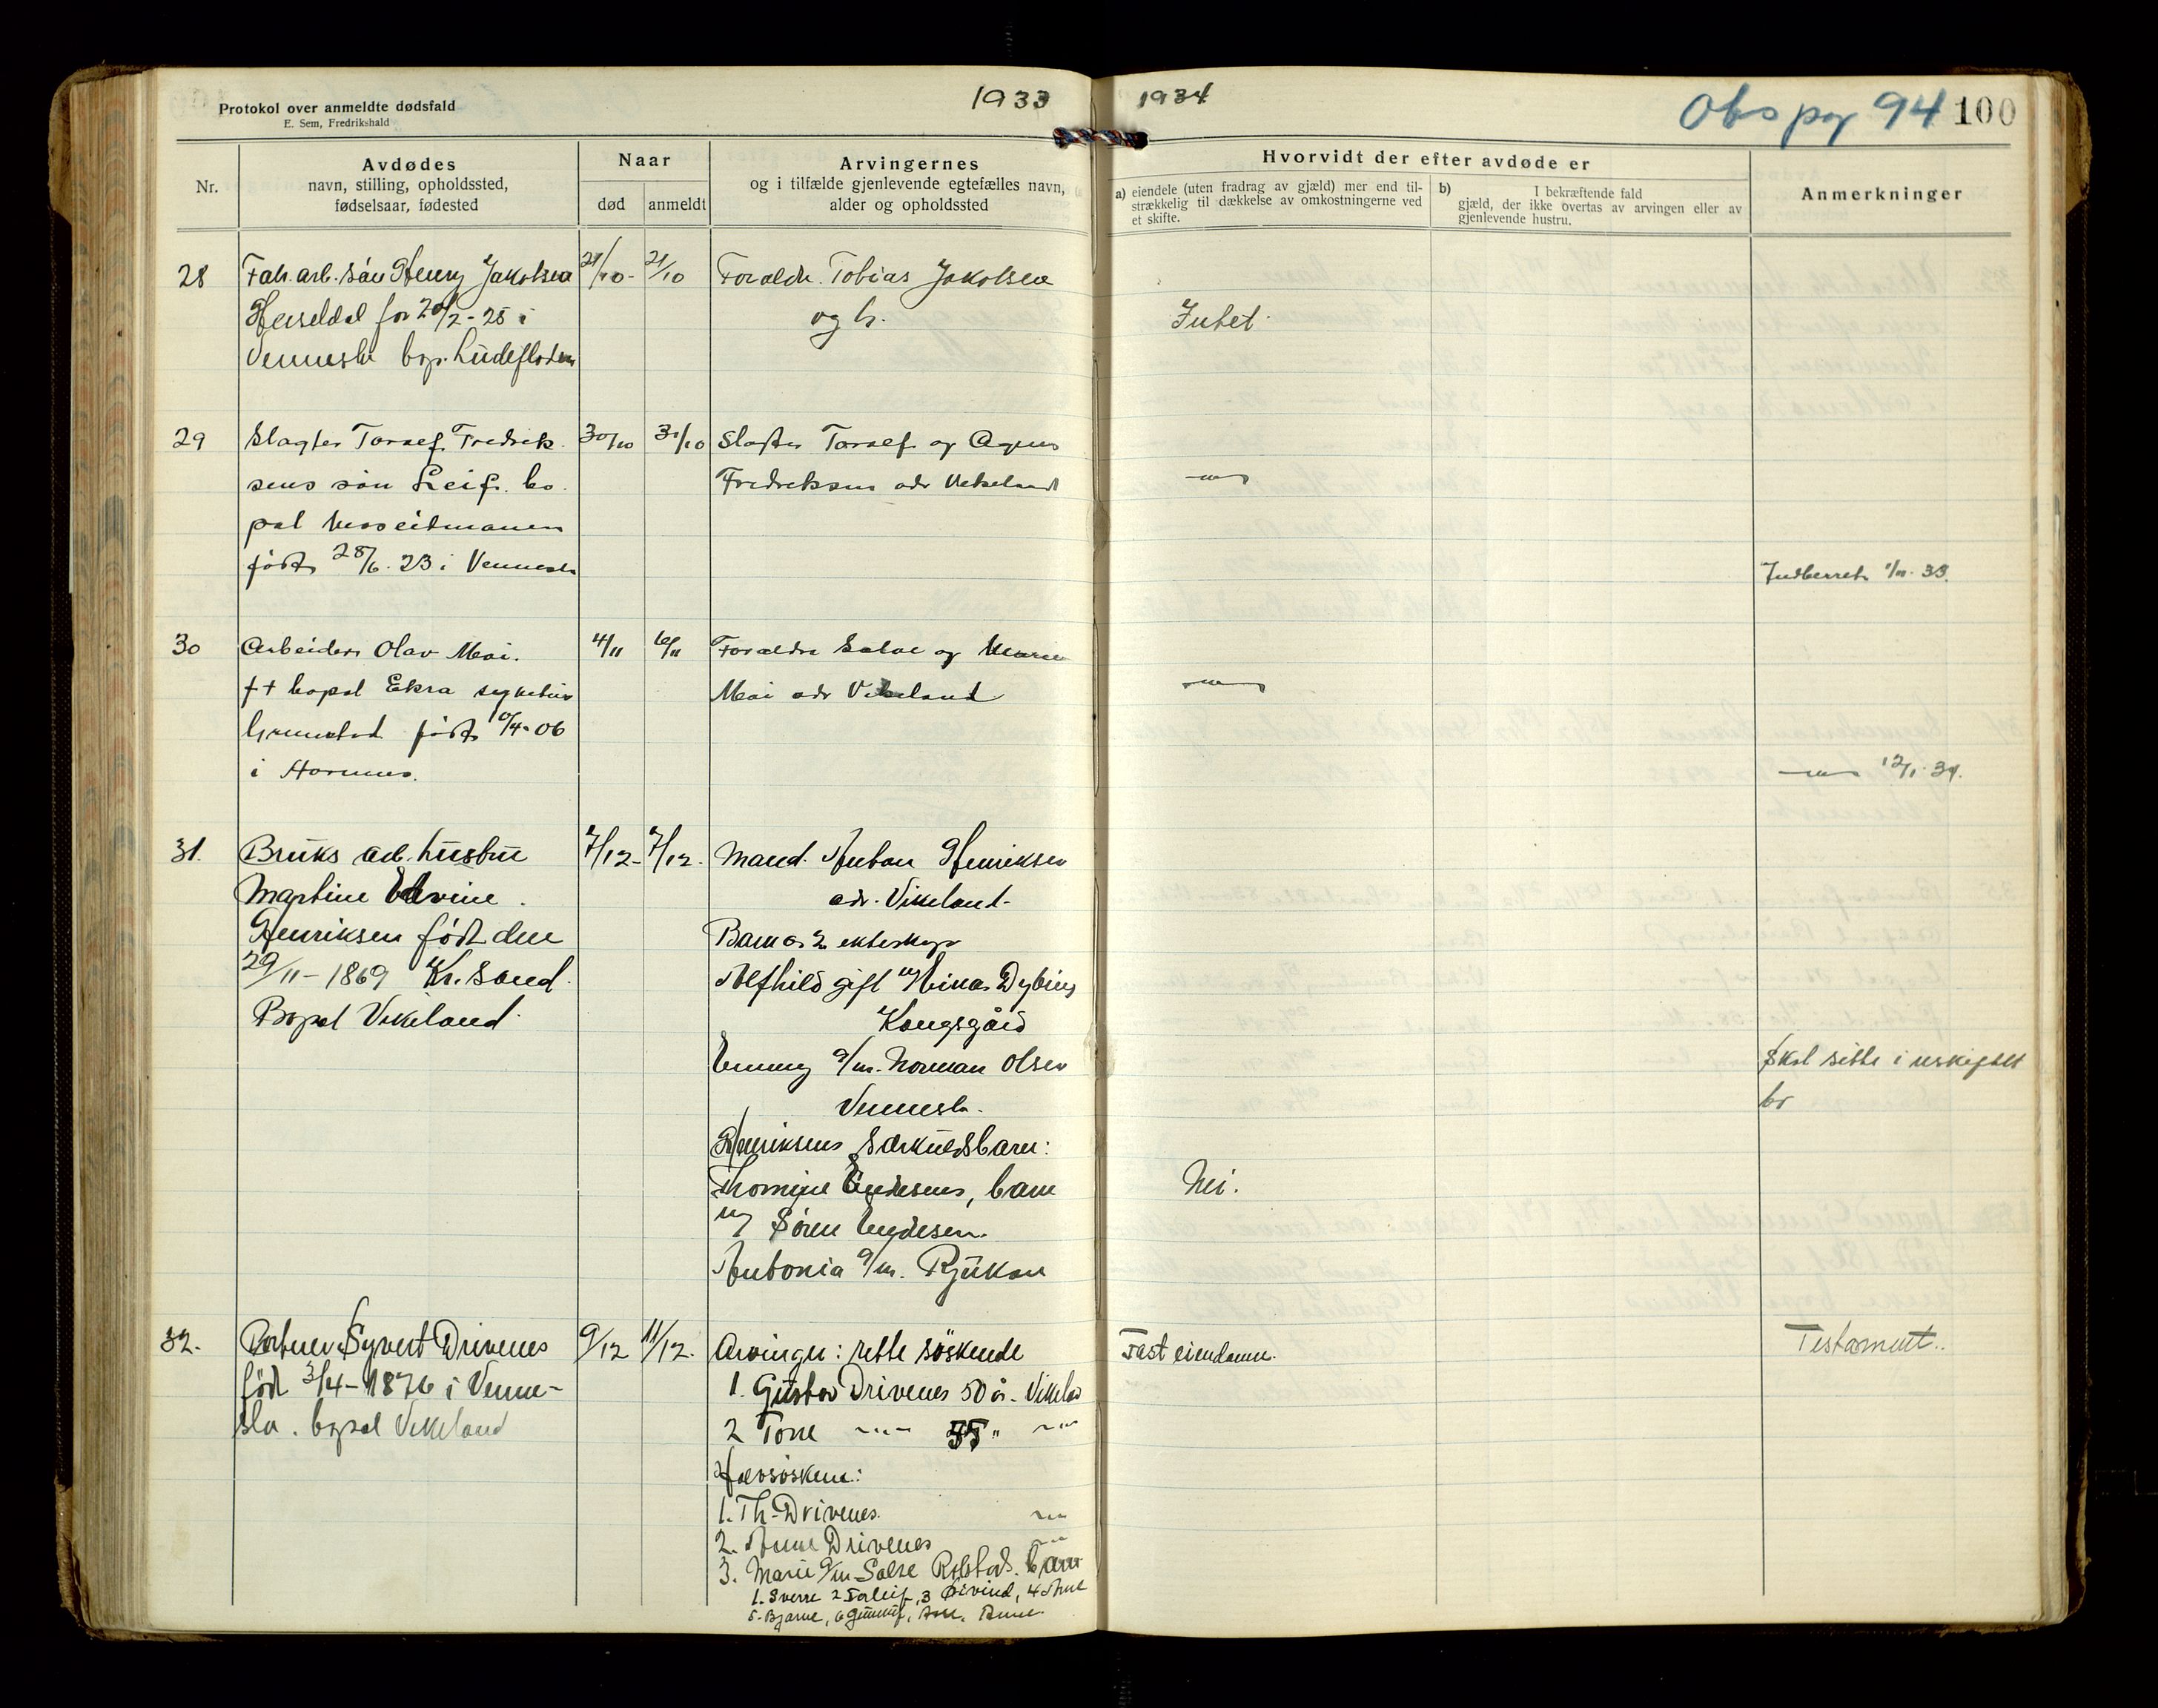 Protokol over anmeldte dødsfald
E. Sem, Fredrikshald
1933
1934
Obs pag 94 100
Nr.
Avdødes
navn, stilling, opholdssted,
fødselsaar, fødested
Naar
død
anmeldt
Arvingernes
og i tilfælde gjenlevende egtefælles navn,
alder og opholdssted
Hvorvidt der efter avdøde er
a) eiendele (uten fradrag av gjæld) mer end til-
strækkelig til dækkelse av omkostningerne ved
et skifte.
b) I bekræftende fald
gjæld, der ikke overtas av arvingen eller av
gjenlevende hustru.
Anmerkninger
28
Fab. arb. sön Henry Jakobsen
for 20/2-25 i
Vennesla bop.
21/10- 21/10
Foraldr. Tobias Jakobsen
og h.
Intet.
29
Slagter Toralf Fredrik
sens sön Leif. bo
pæl Moseidmoen
födt 28/6. 23 i Vennesla
30/10 31/10
Slagter Toralf og Agnes
Fredriksen adr Vikeland
Indberret 1/11. 33.
30
Arbeider Olav Moi.
f+ bopæl Ekra sykehus
Grimstad födt 10/4-06
i Hornnes.
4/11 6/11
Foraldre Salve og Marie
Moi adr Vikeland
12/1. 34.
31.
Bruks arb. hustru
Martine Edvine
Henriksen född den
29/11-1869 Kr. sand
Bopæl Vikeland
7/12- 7/12.
Mand. Anton Henriksen
adr. Vikeland.
Barn a 2 ekteskap
Alfhild gift m/ Einar Dybing
Kongsgård
Emmy g/m. Norman Olsen
Vennesla.
Henriksens Særkuldsbarn:
Thomine Eugdesens, barn
m/ Sören Eugdesen.
Antonia g/m. Rjukan
Nei.
Skal sitte i uskiftet
bo
32.
Portner Syvert Drivenes
född 3/4-1876 i Venne-
sla. bopæl Vikeland
9/12 11/12.
Arvinger: rette söskende
1. Gustav Drivenes 50 år. Vikeland
2 Tone 55 "
Halvsösken:
1. Th. Drivenes.
2. Anne Drivenes
3. Marie g/m Salve Robstad. barn
1. Sverre 2 Torleif, 3 Öivind, 4 Arne
5. Bjarne, 6 Gunnuf, Anne.
Fast eiendom.
Testament..